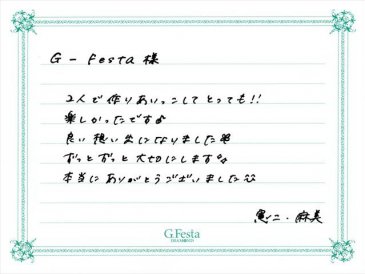 G-Festa 様
2人で作りあいっこしてとっても!!
楽しかったです♪
良い想い出になりました
ずっとずっと大切にします♪
本当にありがとうございました
憲二・麻美
G.Festa
DIAMOND